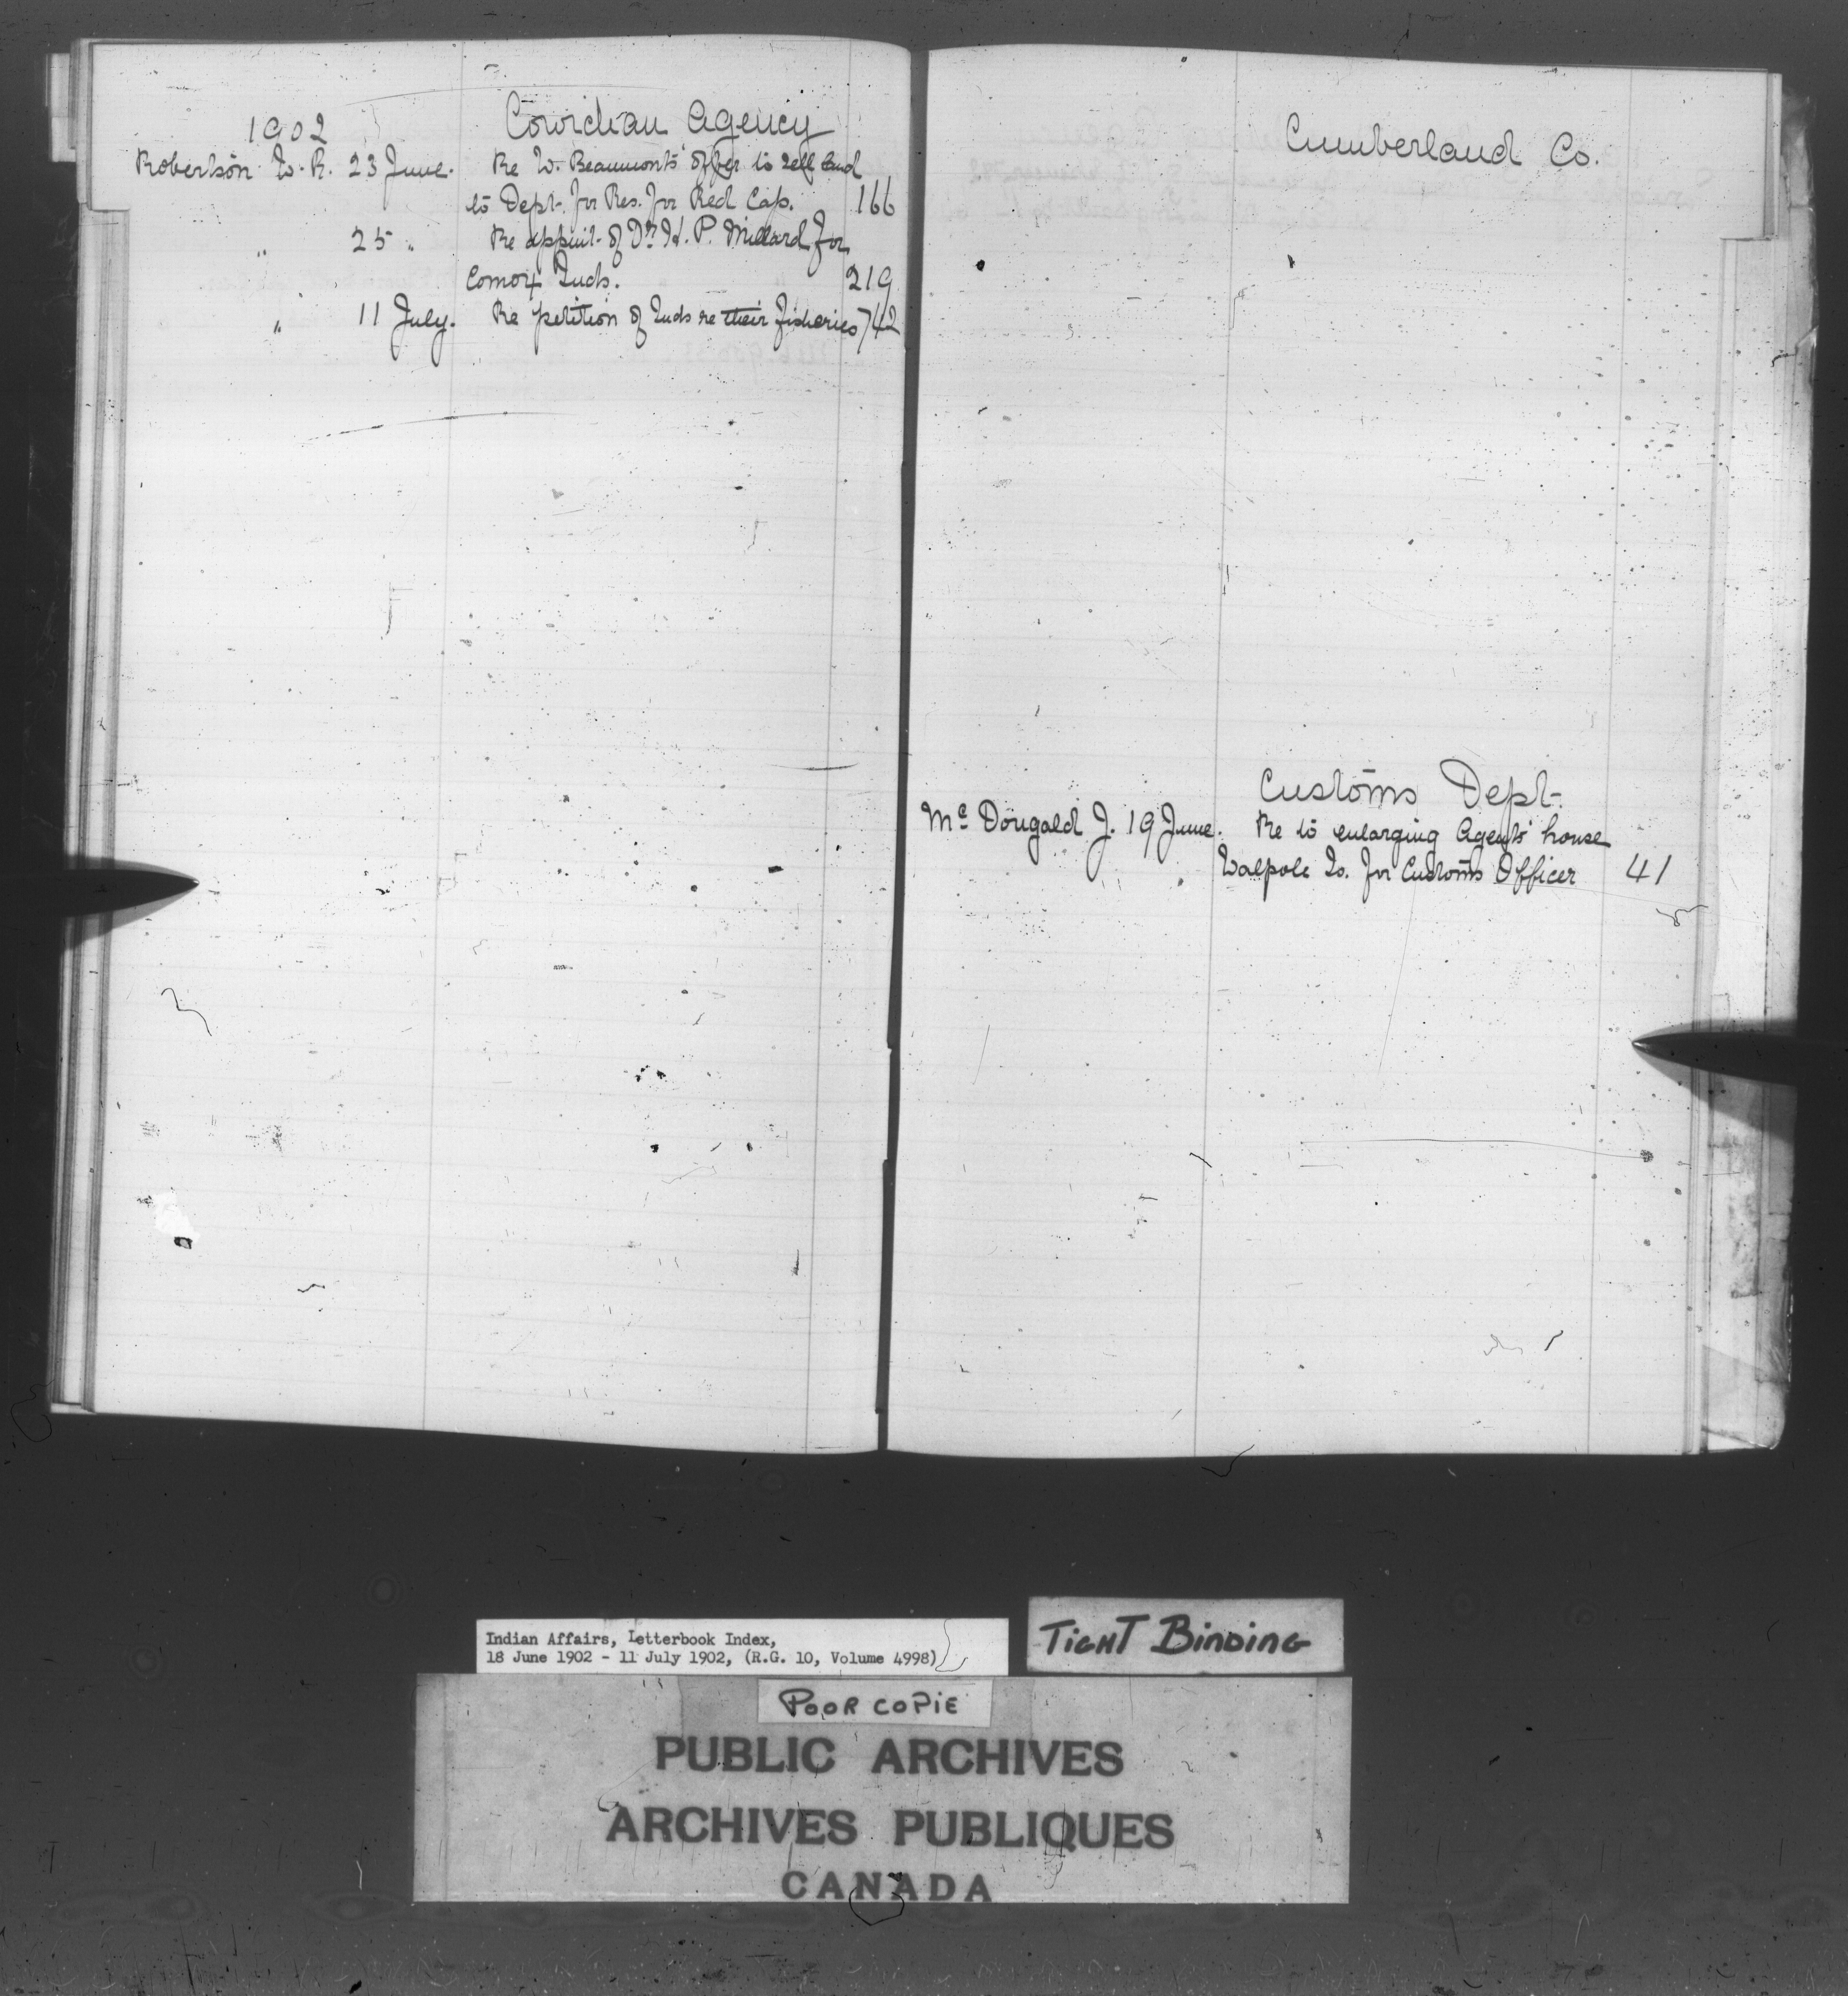 1902 Cowichan Agency
Robertson W. R. 23 June. Re W. Beaumont's offer to sell land
to Dept. for Res. for Red Cap. 166
" 25 " Re appmt. of Dr. H. P. Millard for
Comox Inds. 219
" 11 July. Re petition of Inds re their fisheries 742
Cumberland Co.
Customs Dept.
Mc Dougald J. 19 June. Re to enlarging Agents' house
Walpole Is. for Customs Officer 41
Indian Affairs, Letterbook Index,
18 June 1902 - 11 July 1902, (R.G. 10, Volume 4998)
TIGHT BINDING
POOR COPIE
PUBLIC ARCHIVES
ARCHIVES PUBLIQUES
CANADA